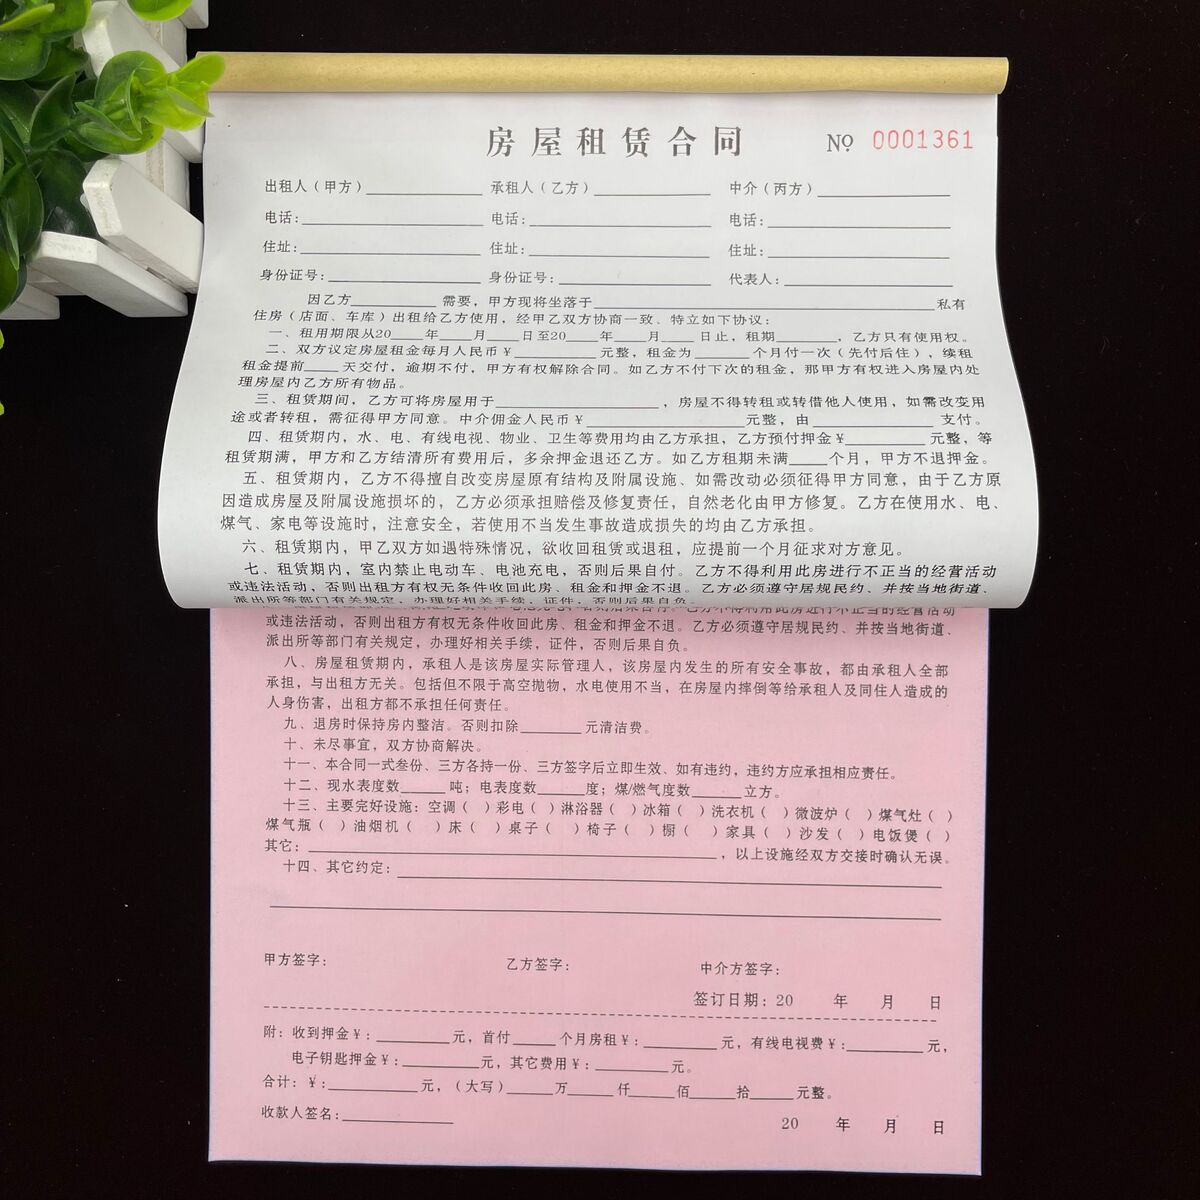 房屋租赁合同 № 0001361
出租人(甲方)__________ 承租人(乙方)__________ 中介(丙方)__________
电话:__________ 电话:__________ 电话:__________
住址:__________ 住址:__________ 住址:__________
身份证号:__________ 身份证号:__________ 代表人:__________
因乙方________需要,甲方现将坐落于______________________________私有
住房(店面、车库)出租给乙方使用,经甲乙双方协商一致、特立如下协议:
一、租用期限从20____年____月____日至20____年____月____日止,租期______,乙方只有使用权。
二、双方议定房屋租金每月人民币¥________元整,租金为______个月付一次(先付后住),续租
租金提前____天交付,逾期不付,甲方有权解除合同。如乙方不付下次的租金,那甲方有权进入房屋内处
理房屋内乙方所有物品。
三、租赁期间,乙方可将房屋用于________________,房屋不得转租或转借他人使用,如需改变用
途或者转租,需征得甲方同意。中介佣金人民币¥________________元整,由______________支付。
四、租赁期内,水、电、有线电视、物业、卫生等费用均由乙方承担,乙方预付押金¥________元整,等
租赁期满,甲方和乙方结清所有费用后,多余押金退还乙方。如乙方租期未满____个月,甲方不退押金。
五、租赁期内,乙方不得擅自改变房屋原有结构及附属设施、如需改动必须征得甲方同意,由于乙方原
因造成房屋及附属设施损坏的,乙方必须承担赔偿及修复责任,自然老化由甲方修复。乙方在使用水、电、
煤气、家电等设施时,注意安全,若使用不当发生事故造成损失的均由乙方承担。
六、租赁期内,甲乙双方如遇特殊情况,欲收回租赁或退租,应提前一个月征求对方意见。
七、租赁期内,室内禁止电动车、电池充电,否则后果自付。乙方不得利用此房进行不正当的经营活动
或违法活动,否则出租方有权无条件收回此房、租金和押金不退。乙方必须遵守居规民约、并按当地街道、
派出所等部门有关规定,办理好相关手续,证件,否则后果自负。
或违法活动,否则出租方有权无条件收回此房、租金和押金不退。乙方必须遵守居规民约、并按当地街道、
派出所等部门有关规定,办理好相关手续,证件,否则后果自负。
八、房屋租赁期内,承租人是该房屋实际管理人,该房屋内发生的所有安全事故,都由承租人全部
承担,与出租方无关。包括但不限于高空抛物,水电使用不当,在房屋内摔倒等给承租人及同住人造成的
人身伤害,出租方都不承担任何责任。
九、退房时保持房内整洁。否则扣除________元清洁费。
十、未尽事宜,双方协商解决。
十一、本合同一式叁份、三方各持一份、三方签字后立即生效、如有违约,违约方应承担相应责任。
十二、现水表度数______吨;电表度数______度;煤/燃气度数______立方。
十三、主要完好设施:空调( )彩电( )淋浴器( )冰箱( )洗衣机( )微波炉( )煤气灶( )
煤气瓶( )油烟机( )床( )桌子( )椅子( )橱( )家具( )沙发( )电饭煲( )
其它:________________________________________,以上设施经双方交接时确认无误。
十四、其它约定:________________________________________
甲方签字: 乙方签字: 中介方签字:
签订日期:20 年 月 日
附:收到押金¥:________元,首付____个月房租¥:________元,有线电视费¥:________元,
电子钥匙押金¥:________元,其它费用¥:________元。
合计:¥:________元,(大写)____万____仟____佰____拾____元整。
收款人签名:__________
20 年 月 日